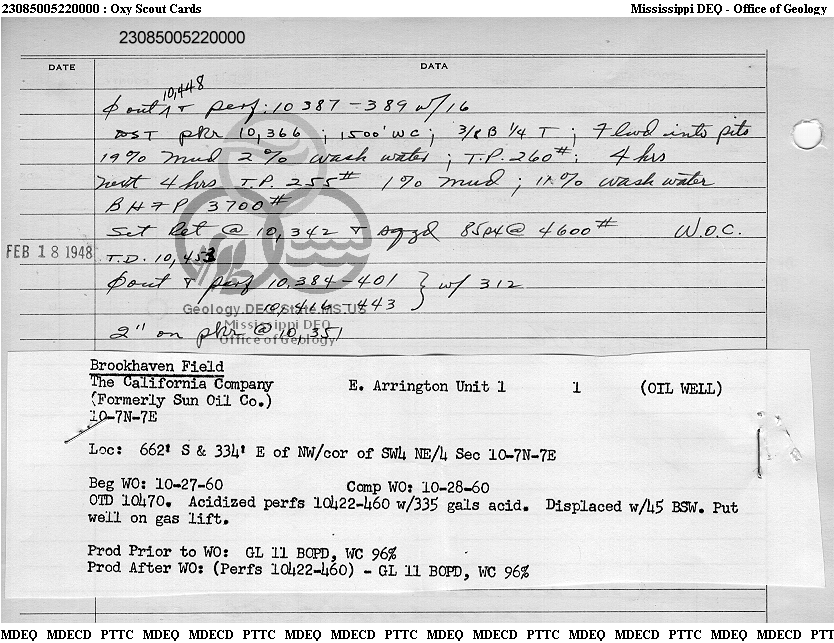 23085005220000 : Oxy Scout Cards
Mississippi DEQ - Office of Geology
23085005220000
DATE
DATA
10,448
out & perf. 10387-389 w/16
DST pkr 10,366 ; 1500' WC ; 3/8 B 1/4 T ; Flwd into pits
19% mud 2% wash water ; T.P. 260# ; 4 hrs
next 4 hrs T.P. 255# 1% mud ; 1% wash water
BHFP 3700#
Set Ret @ 10,342 & sqzd 85px @ 4600# W.O.C.
FEB 18 1948
T.D. 10,453
out & perf 10,384-401 } w/ 312
10,416-443
Geology.DEQ.State.MS.US
Mississippi DEQ
Office of Geology
2" on pkr @ 10,351
Brookhaven Field
The California Company E. Arrington Unit 1 1 (OIL WELL)
(Formerly Sun Oil Co.)
10-7N-7E
Loc: 662' S & 334' E of NW/cor of SW4 NE/4 Sec 10-7N-7E
Beg WO: 10-27-60 Comp WO: 10-28-60
OTD 10470. Acidized perfs 10422-460 w/335 gals acid. Displaced w/45 BSW. Put
well on gas lift.
Prod Prior to WO: GL 11 BOPD, WC 96%
Prod After WO: (Perfs 10422-460) - GL 11 BOPD, WC 96%
MDEQ MDECD PTTC MDEQ MDECD PTTC MDEQ MDECD PTTC MDEQ MDECD PTTC MDEQ MDECD PTTC MDEQ MDECD PTT